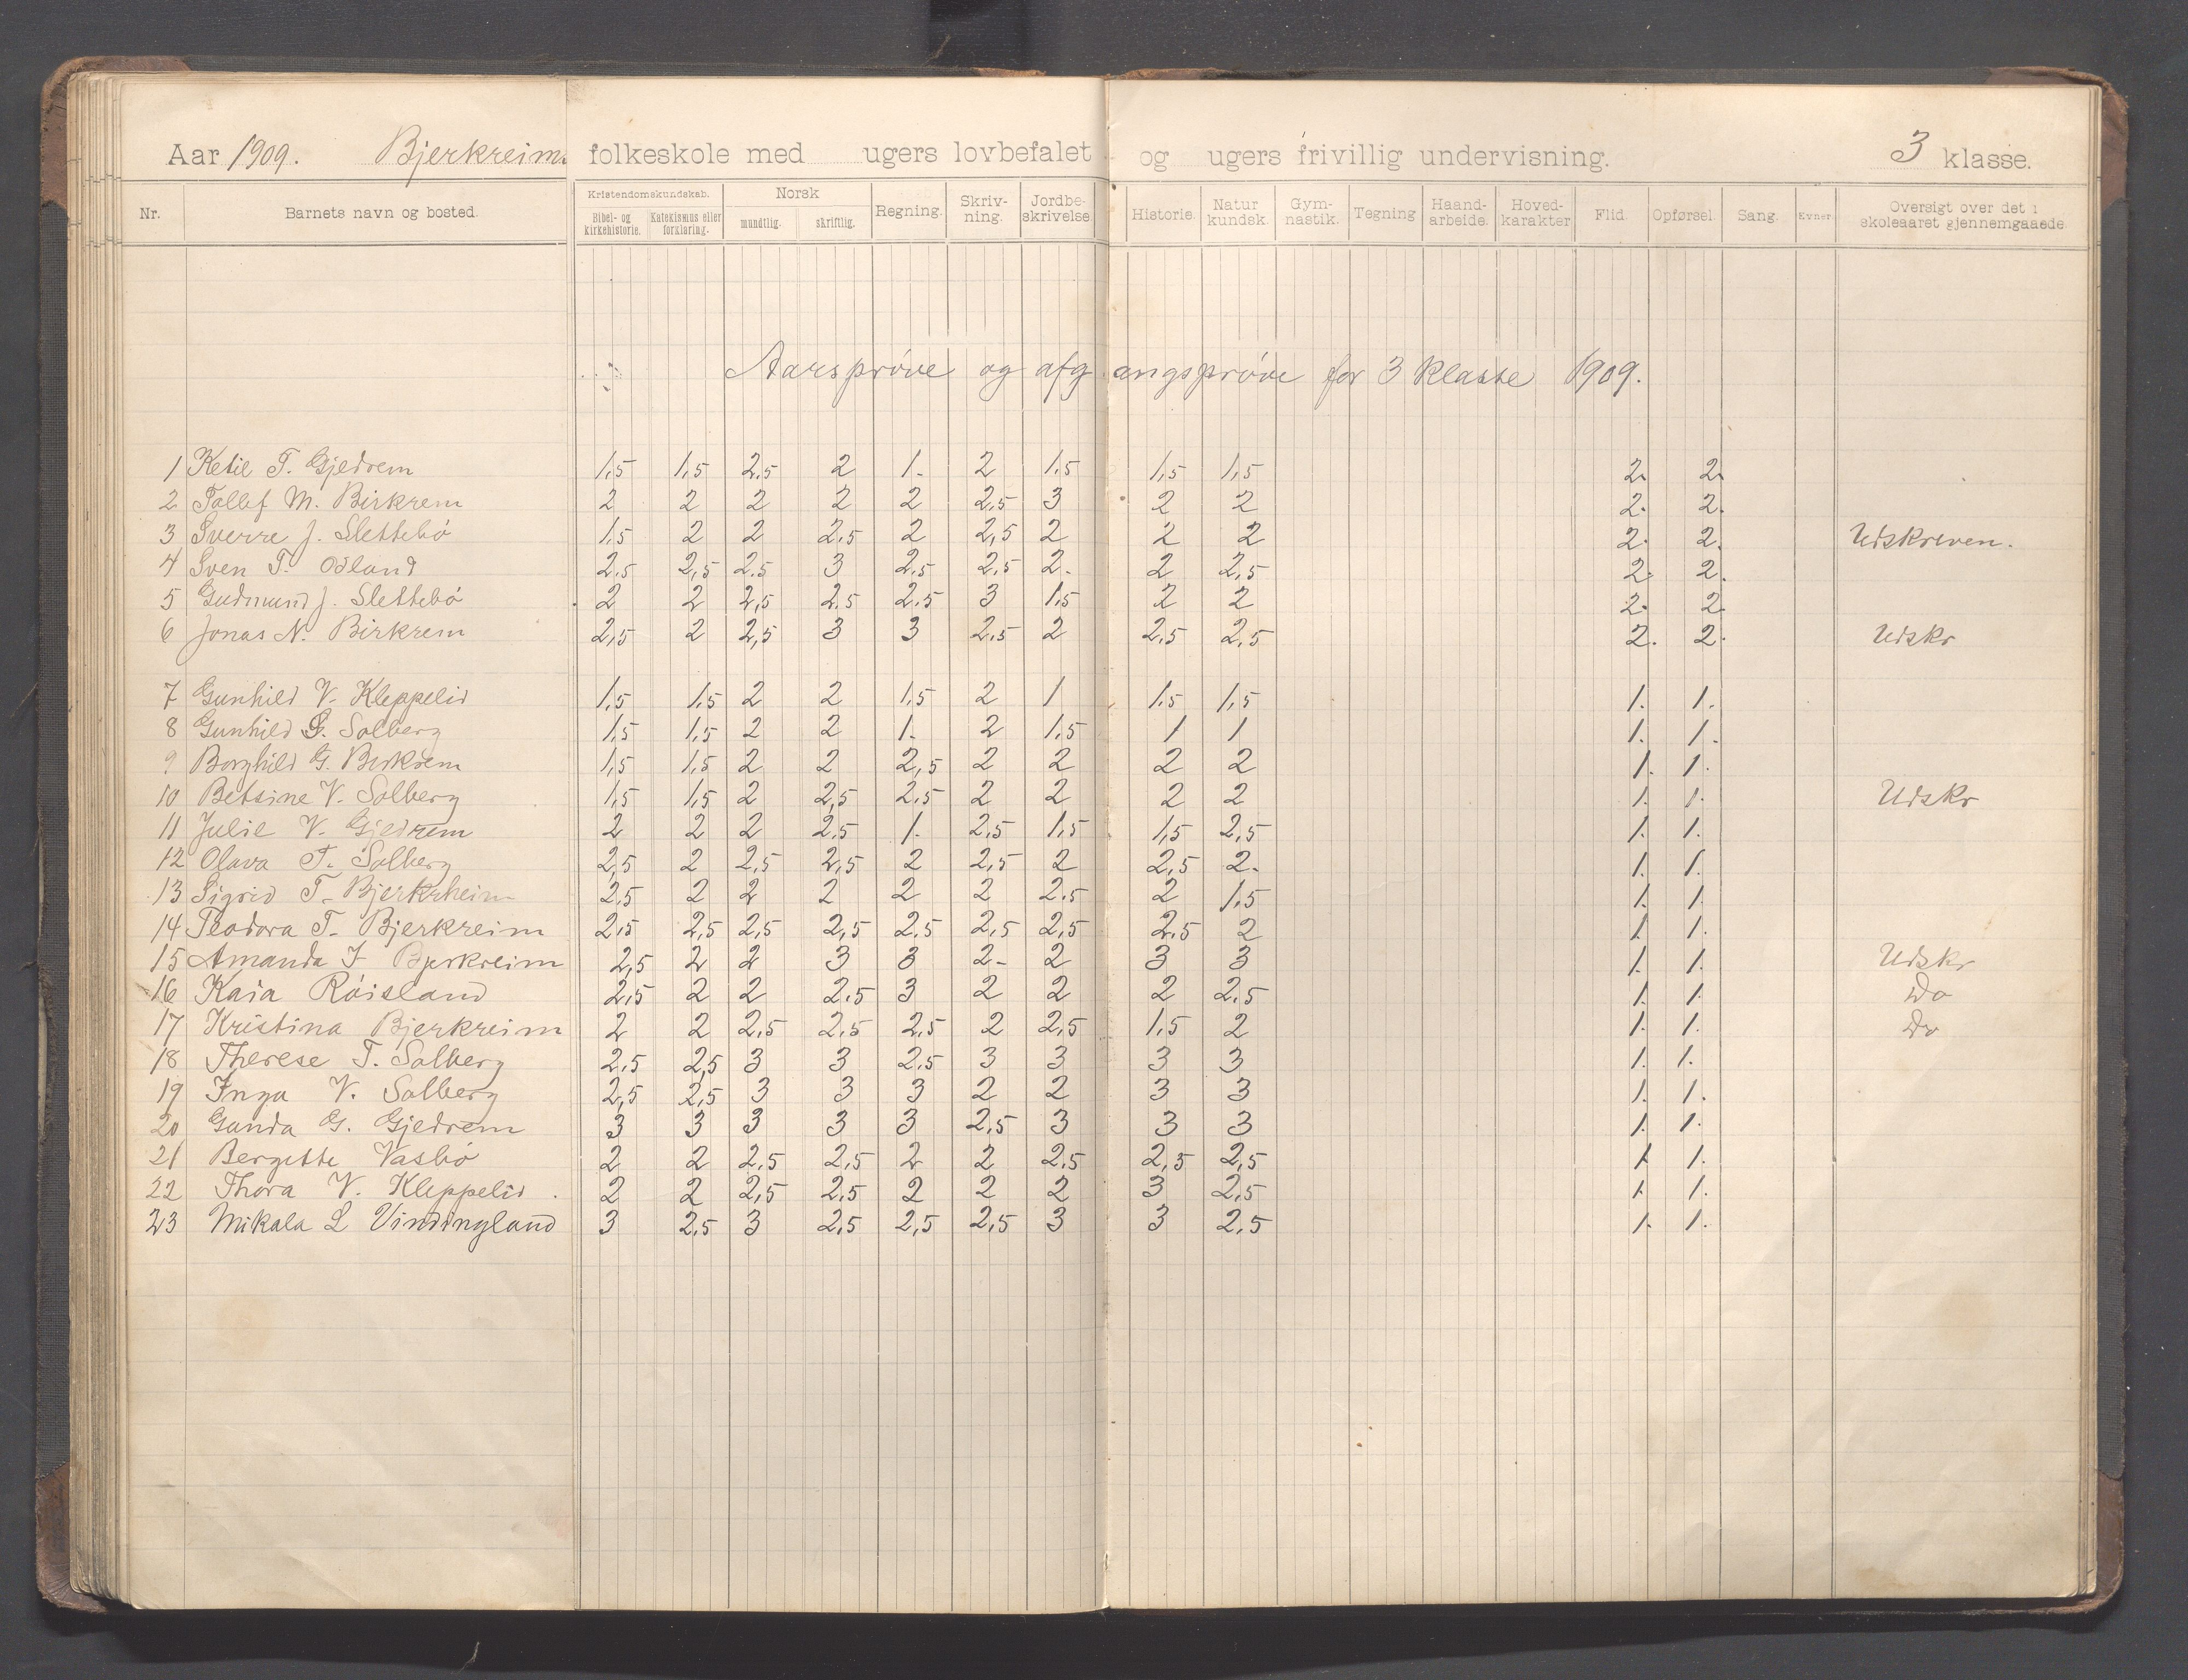 Aar 1909. Bjerkreim folkeskole med ugers lovbefalet og ugers frivillig undervisning. 3 klasse.
Nr. Barnets navn og bosted. Kristendomskundskab. Bibel- og kirkehistorie. Katekismus eller forklaring. Norsk mundtlig. skriftlig. Regning. Skriv-ning. Jordbe-skrivelse. Historie. Natur kundsk. Gym-nastik. Tegning Haand-arbeide. Hoved-karakter Flid. Opførsel. Sang. Evner. Oversigt over det i skoleaaret gjennemgaaede.
Aarsprøve og afgangsprøve for 3 klasse 1909.
1 Ketil T. Gjedrem 1,5 1,5 2,5 2 1. 2 1.5 1,5 1,5 2. 2.
2 Tollef M. Birkrem 2 2 2 2 2 2,5 3 2 2 2. 2.
3 Sverre J. Slettebö 1.5 2 2 2.5 2 2,5 2 2 2 2. 2. Udskreven.
4 Sven T. Odland 2.5 2,5 2.5 3 2.5 2.5 2. 2 2,5 2. 2.
5 Gudmund J. Slettebö 2 2 2,5 2.5 2.5 3 1.5 2 2 2. 2.
6 Jonas N. Birkrem 2,5 2 2,5 3 3 2.5 2 2,5 2.5 2. 2. Udskr
7 Gunhild V. Kleppelid 1,5 1,5 2 2 1,5 2 1 1.5 1,5 1. 1.
8 Gunhild G. Solberg 1,5 1,5 2 2 1. 2 1,5 1 1 1. 1.
9 Borghild G. Birkrem 1,5 1,5 2 2 2,5 2 2 2 2 1. 1.
10 Betsine V. Solberg 1,5 1,5 2 2,5 2.5 2 2 2 2 1. 1. Udskr
11 Julie V. Gjedrem 2 2 2 2.5 1. 2,5 1,5 1,5 2,5 1. 1.
12 Olava T. Solberg 2,5 2 2,5 2,5 2 2,5 2 2,5 2. 1. 1.
13 Sigrid T. Bjerkrheim 2,5 2 2 2 2 2 2.5 2 1.5 1. 1.
14 Teodora T. Bjerkreim 2,5 2,5 2,5 2,5 2.5 2,5 2,5 2.5 2 1. 1.
15 Amanda J Bjerkreim 2,5 2 2 3 3 2- 2 3 3 1. 1. Udskr
16 Kaia Röisland 2,5 2 2 2.5 3 2 2 2 2.5 1. 1. Do
17 Kristina Bjerkreim 2 2 2,5 2.5 2,5 2 2,5 1,5 2 1. 1. Do
18 Therese T. Solberg 2,5 2,5 3 3 2.5 3 3 3 3 1. 1.
19 Inga V. Solberg 2,5 2,5 3 3 3 2 2 3 3 1. 1.
20 Gunda G. Gjedrem 3 3 3 3 3 2,5 3 3 3 1. 1.
21 Bergitte Vasbö 2 2 2.5 2,5 2 2 2.5 2,5 2,5 1. 1.
22 Thora V. Kleppelid 2 2 2,5 2,5 2 2 2 3 2,5 1. 1.
23 Mikala L Vindingland 3 2,5 3 2,5 2,5 2,5 3 3 2,5 1. 1.